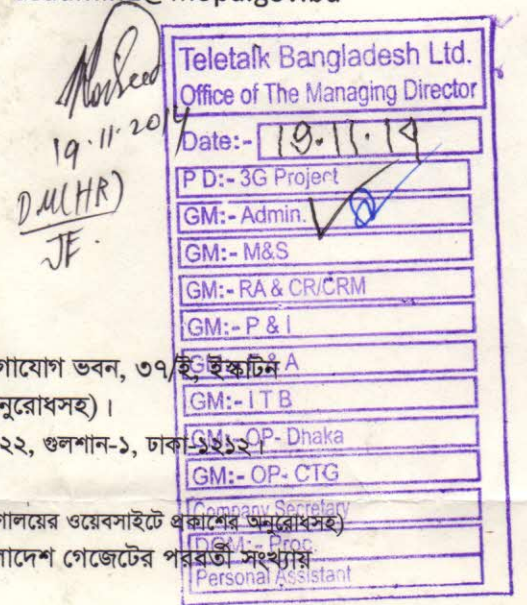 19.11.2014
DM(HR)
JE.
Teletalk Bangladesh Ltd.
Office of The Managing Director
Date:- 19.11.14
P D:- 3G Project
GM:- Admin.
GM:- M&S
GM:- RA & CR/CRM
GM:- P & I
GM:- & A
GM:- I T B
GM:- OP- Dhaka
GM:- OP- CTG
Company Secretary
DGM:- Proc.
Personal Assistant
যোগাযোগ ভবন, ৩৭/ই, ইস্কাটন
অনুরোধসহ)।
২২, গুলশান-১, ঢাকা-১২১২।
ওয়েবসাইটে প্রকাশের অনুরোধসহ)
গেজেটের পরবর্তী সংখ্যায়